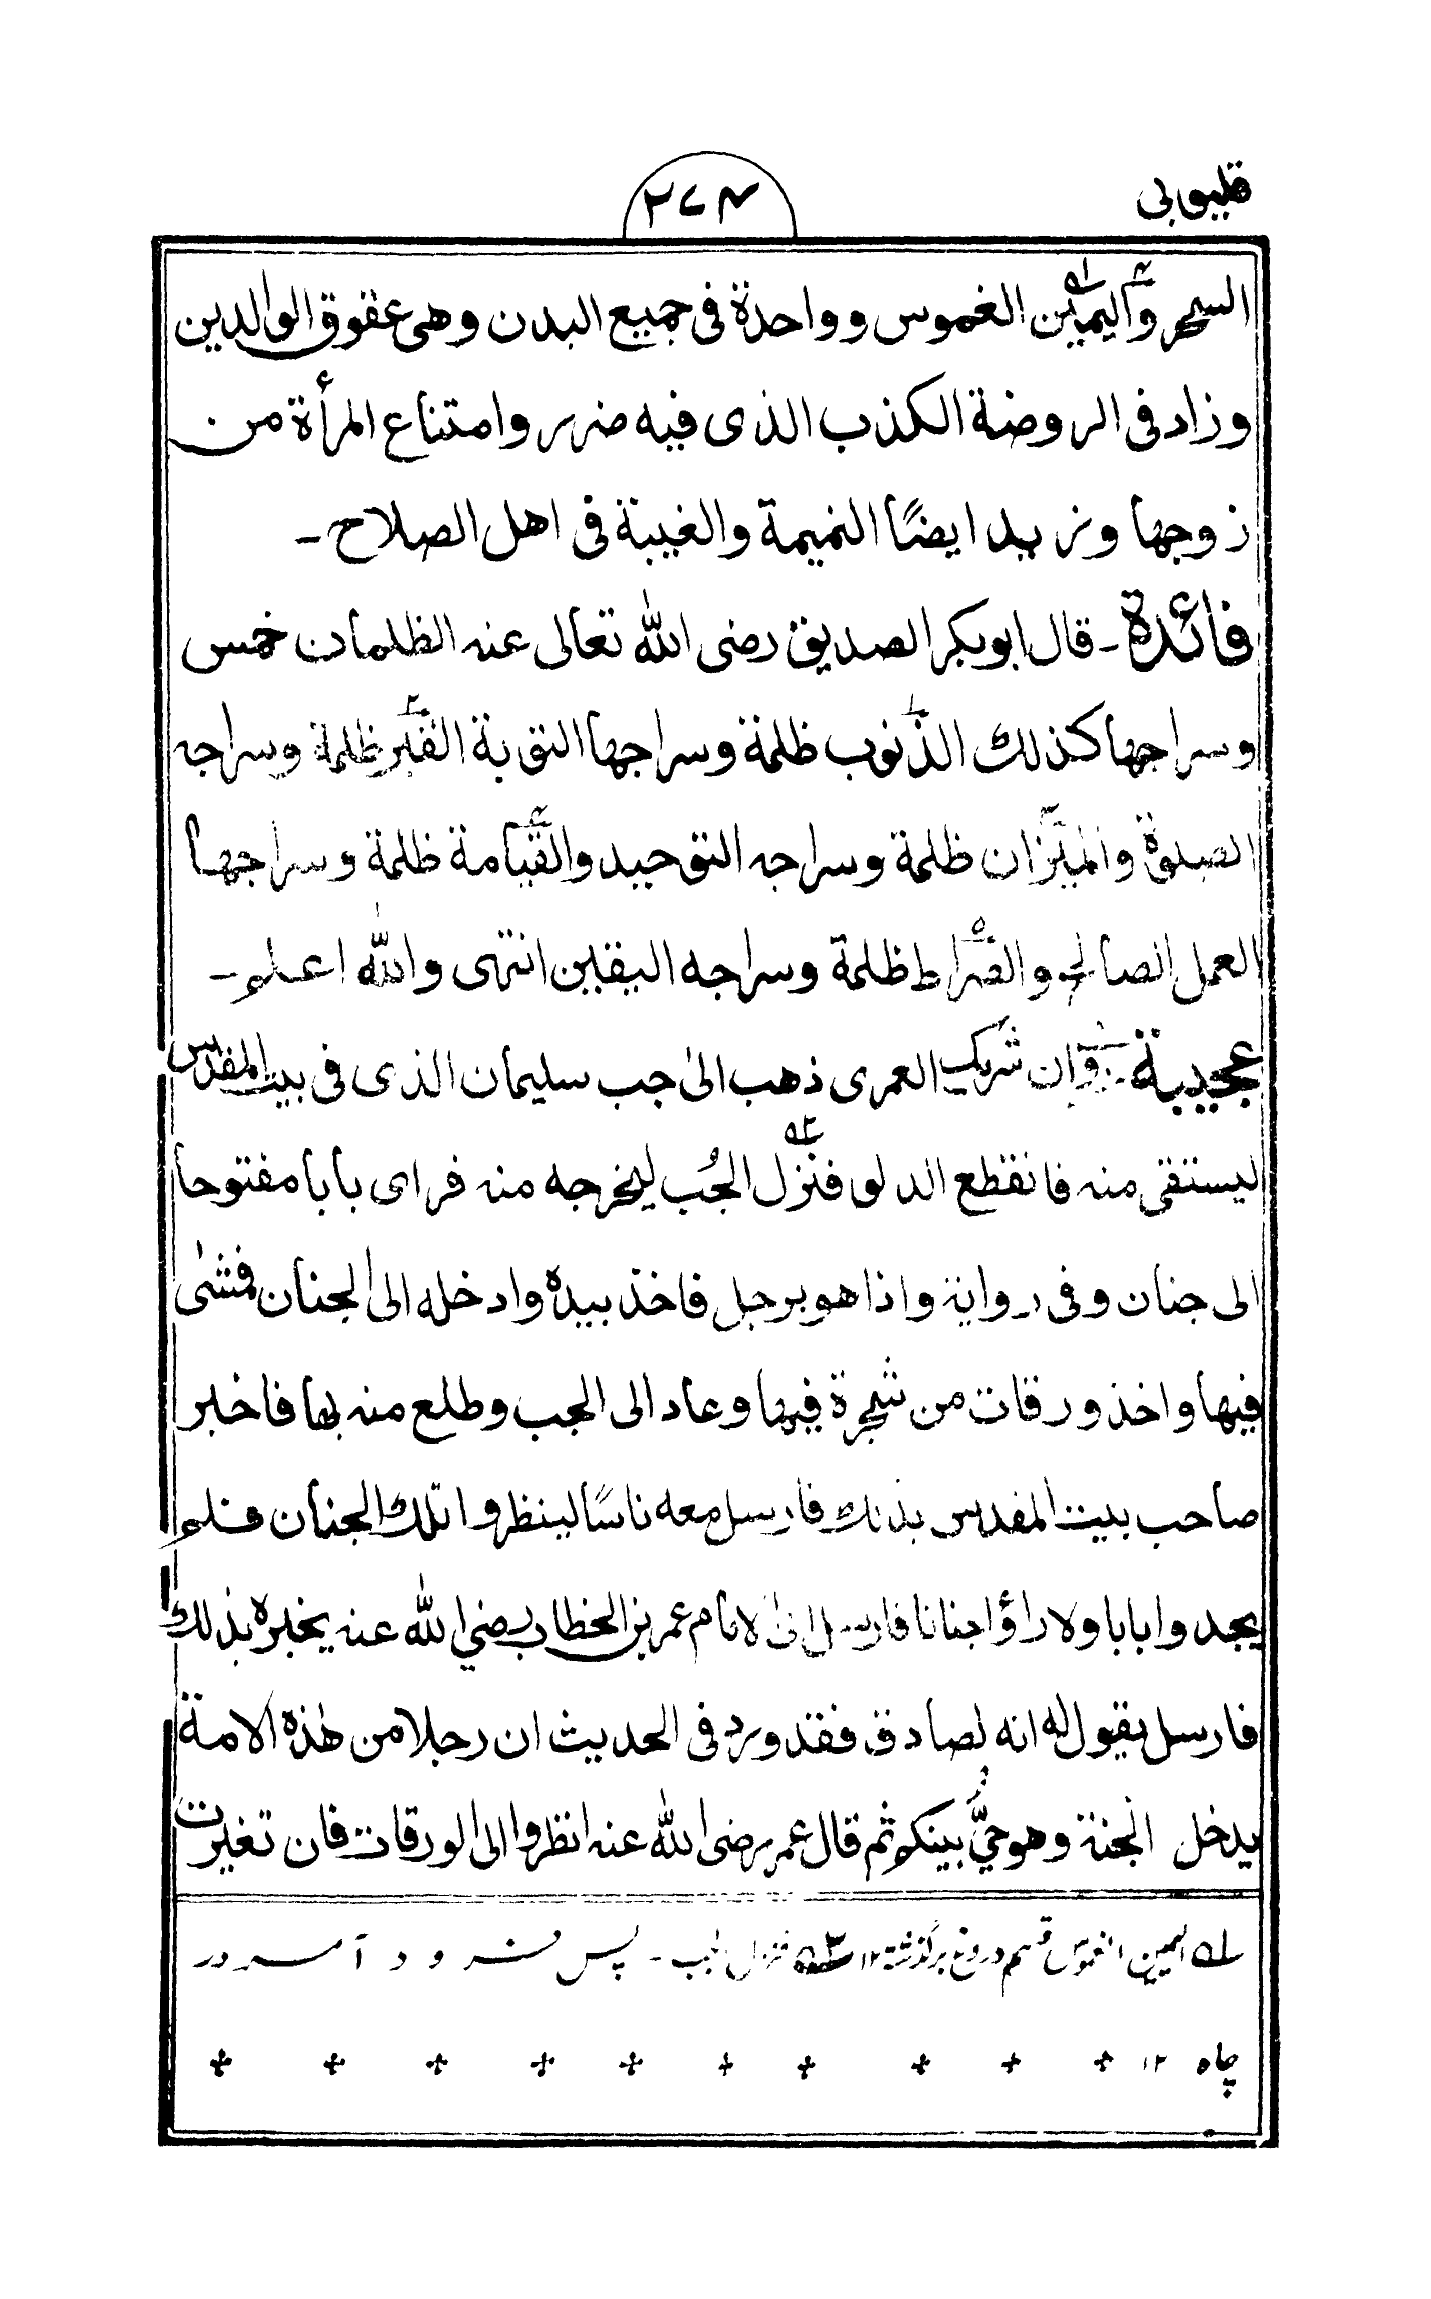 قليوبى
٢٧٤
السحر واليمين الغموس وواحدة فى جميع البدن وهى عقوق الوالدين
وزاد فى الروضة الكذب الذى فيه ضرر وامتناع المرأة من
زوجها وزيد ايضًا النميمة والغيبة فى اهل الصلاح ـ
فائدة ـ قال ابوبكر الصديق رضى الله تعالى عنه الظلمات خمس
وسراجها كذلك الذنوب ظلمة وسراجها التوبة القبر ظلمة وسراجه
الصلوة والميزان ظلمة وسراجه التوحيد والقيامة ظلمة وسراجها
العمل الصالح والصراط ظلمة وسراجه اليقين انتهى والله اعلم ـ
عجيبة ـ ان شريك العمرى ذهب الىٰ جب سليمان الذى فى بيت المقدس
ليستقى منه فانقطع الدلو فنزل الجُب ليخرجه منه فراى بابا مفتوحا
الى جنان وفى رواية واذا هو برجل فاخذ بيده وادخله الى الجنان فمشىٰ
فيها واخذ ورقات من شجرة فيها وعاد الى الجب وطلع منه بها فاخبر
صاحب بيت المقدس بذلك فارسل معه ناسًا لينظروا تلك الجنان فلم
يجدوا بابا ولا راؤا جنانا فارسل الىٰ الامام عمر بن الخطاب رضي الله عنه يخبره بذلك
فارسل يقول له انه لصادق فقد ورد فى الحديث ان رجلا من هٰذه الامة
يدخل الجنة وهو حيٌّ بينكم ثم قال عمر رضى الله عنه انظروا الى الورقات فان تغيرت
١ه اليمين الغموس قسم دروغ برگذشته ١٢ ٢ه فنزل الجب ـ پس فرود آمد در
چاه ١٢